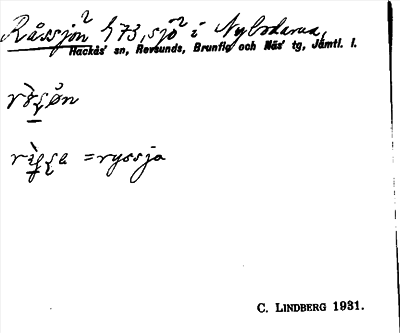 Råssjön² h 73, sjö² i Nybodarna,
Hackås' sn, Revsunds, Brunflo och Näs' tg, Jämtl. l.
= ryssja
C. LINDBERG 1931.